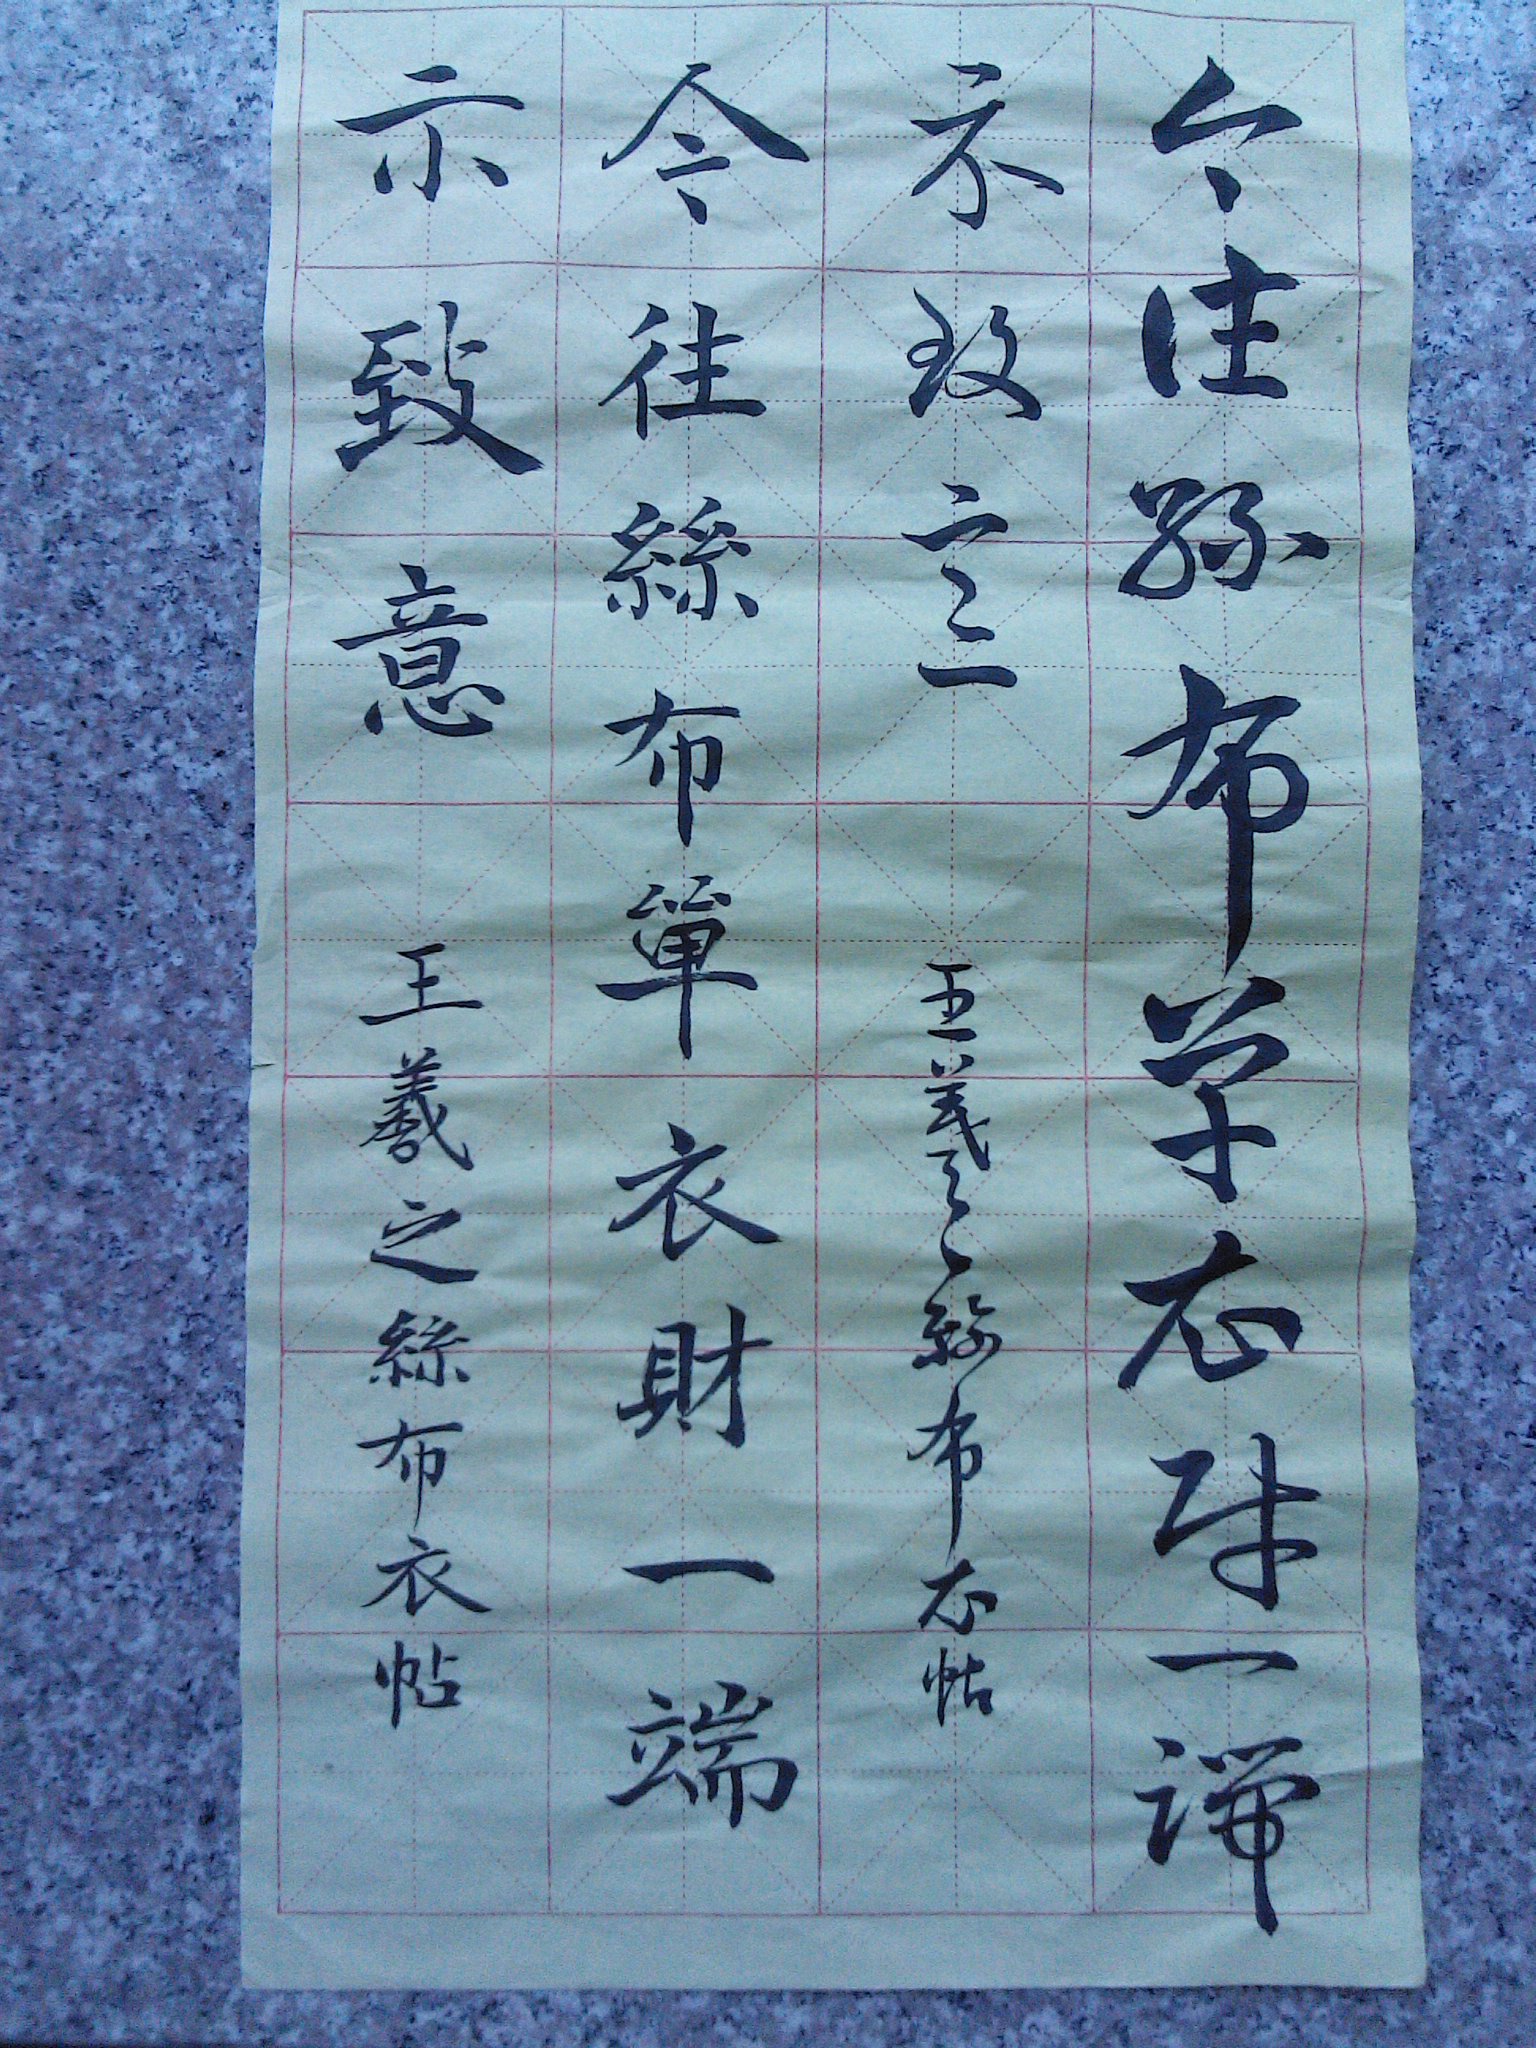 今往絲布單衣財一端
示致意 王羲之絲布衣帖
今往絲布單衣財一端
示致意 王羲之絲布衣帖